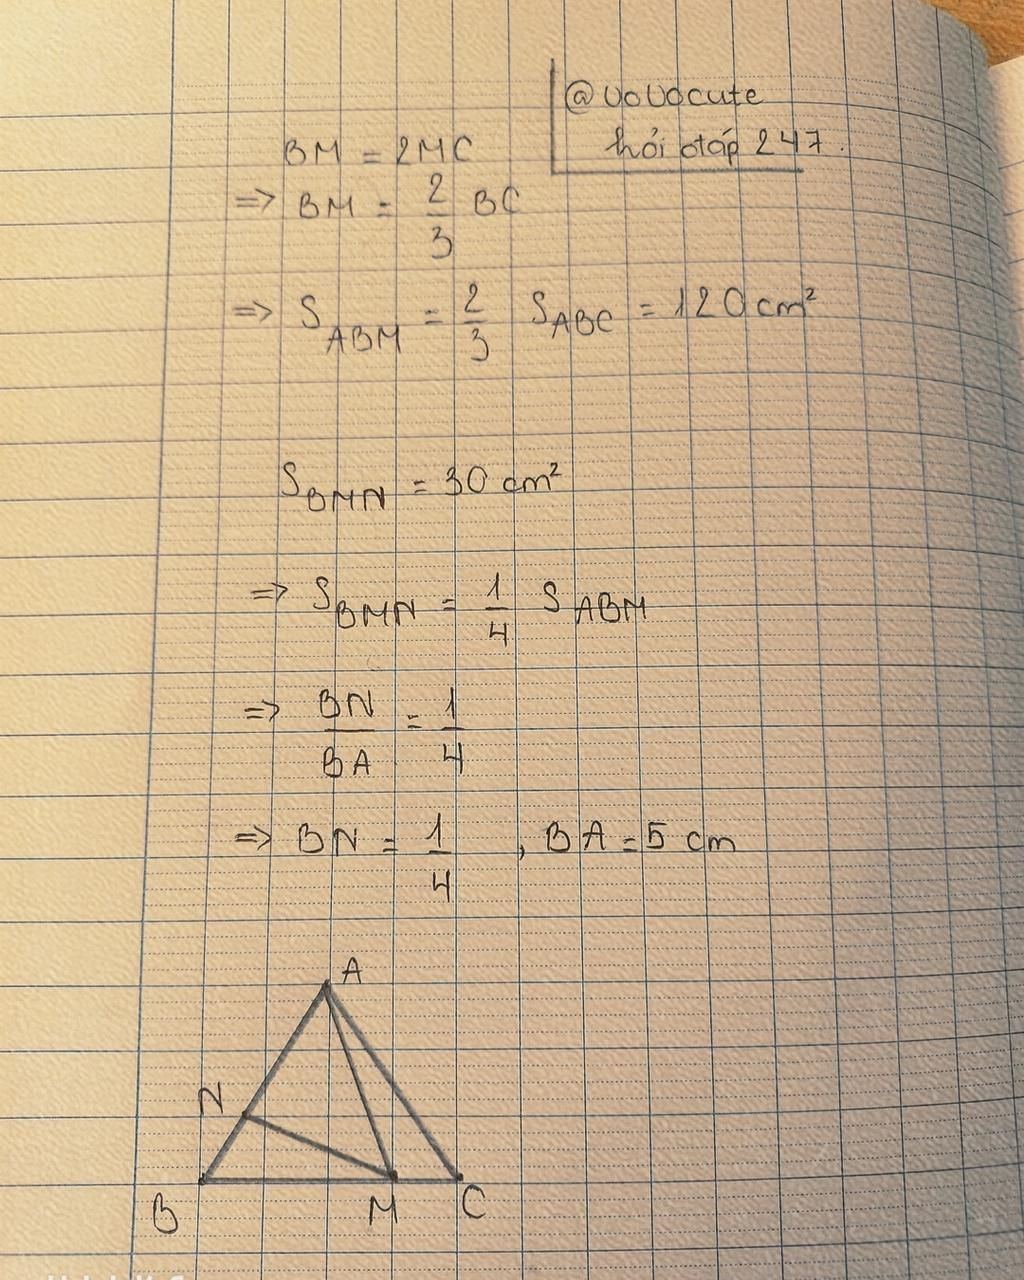 @vovocute
hỏi đáp 247.
BM = 2MC
=> BM = 2/3 BC
=> S ABM = 2/3 S ABC = 120 cm²
S BMN = 30 cm²
=> S BMN = 1/4 S ABM
=> BN/BA = 1/4
=> BN = 1/4 , BA = 5 cm
A
N
B M C